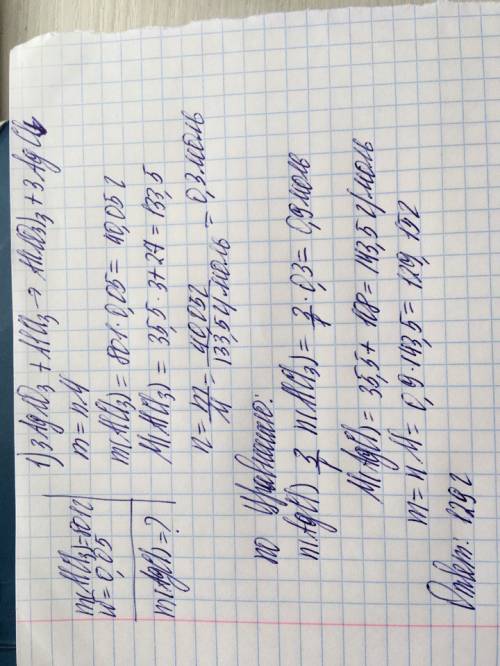 1) 3AgNO₃ + AlCl₃ → Al(NO₃)₃ + 3AgCl↓
m(AlCl₃) = 801г
w = 0,05
m(AgCl) = ?
m = n·M
m(AlCl₃) = 801·0,05 = 40,05 г
M(AlCl₃) = 35,5·3+27 = 133,5
n = m/M = 40,05г/133,5г/моль = 0,3 моль
по уравнению:
n(AgCl) 3/1 n(AlCl₃) = 3/1 · 0,3 = 0,9 моль
M(AgCl) = 35,5 + 108 = 143,5 г/моль
m = n M = 0,9·143,5 = 129,15г
Ответ: 129г